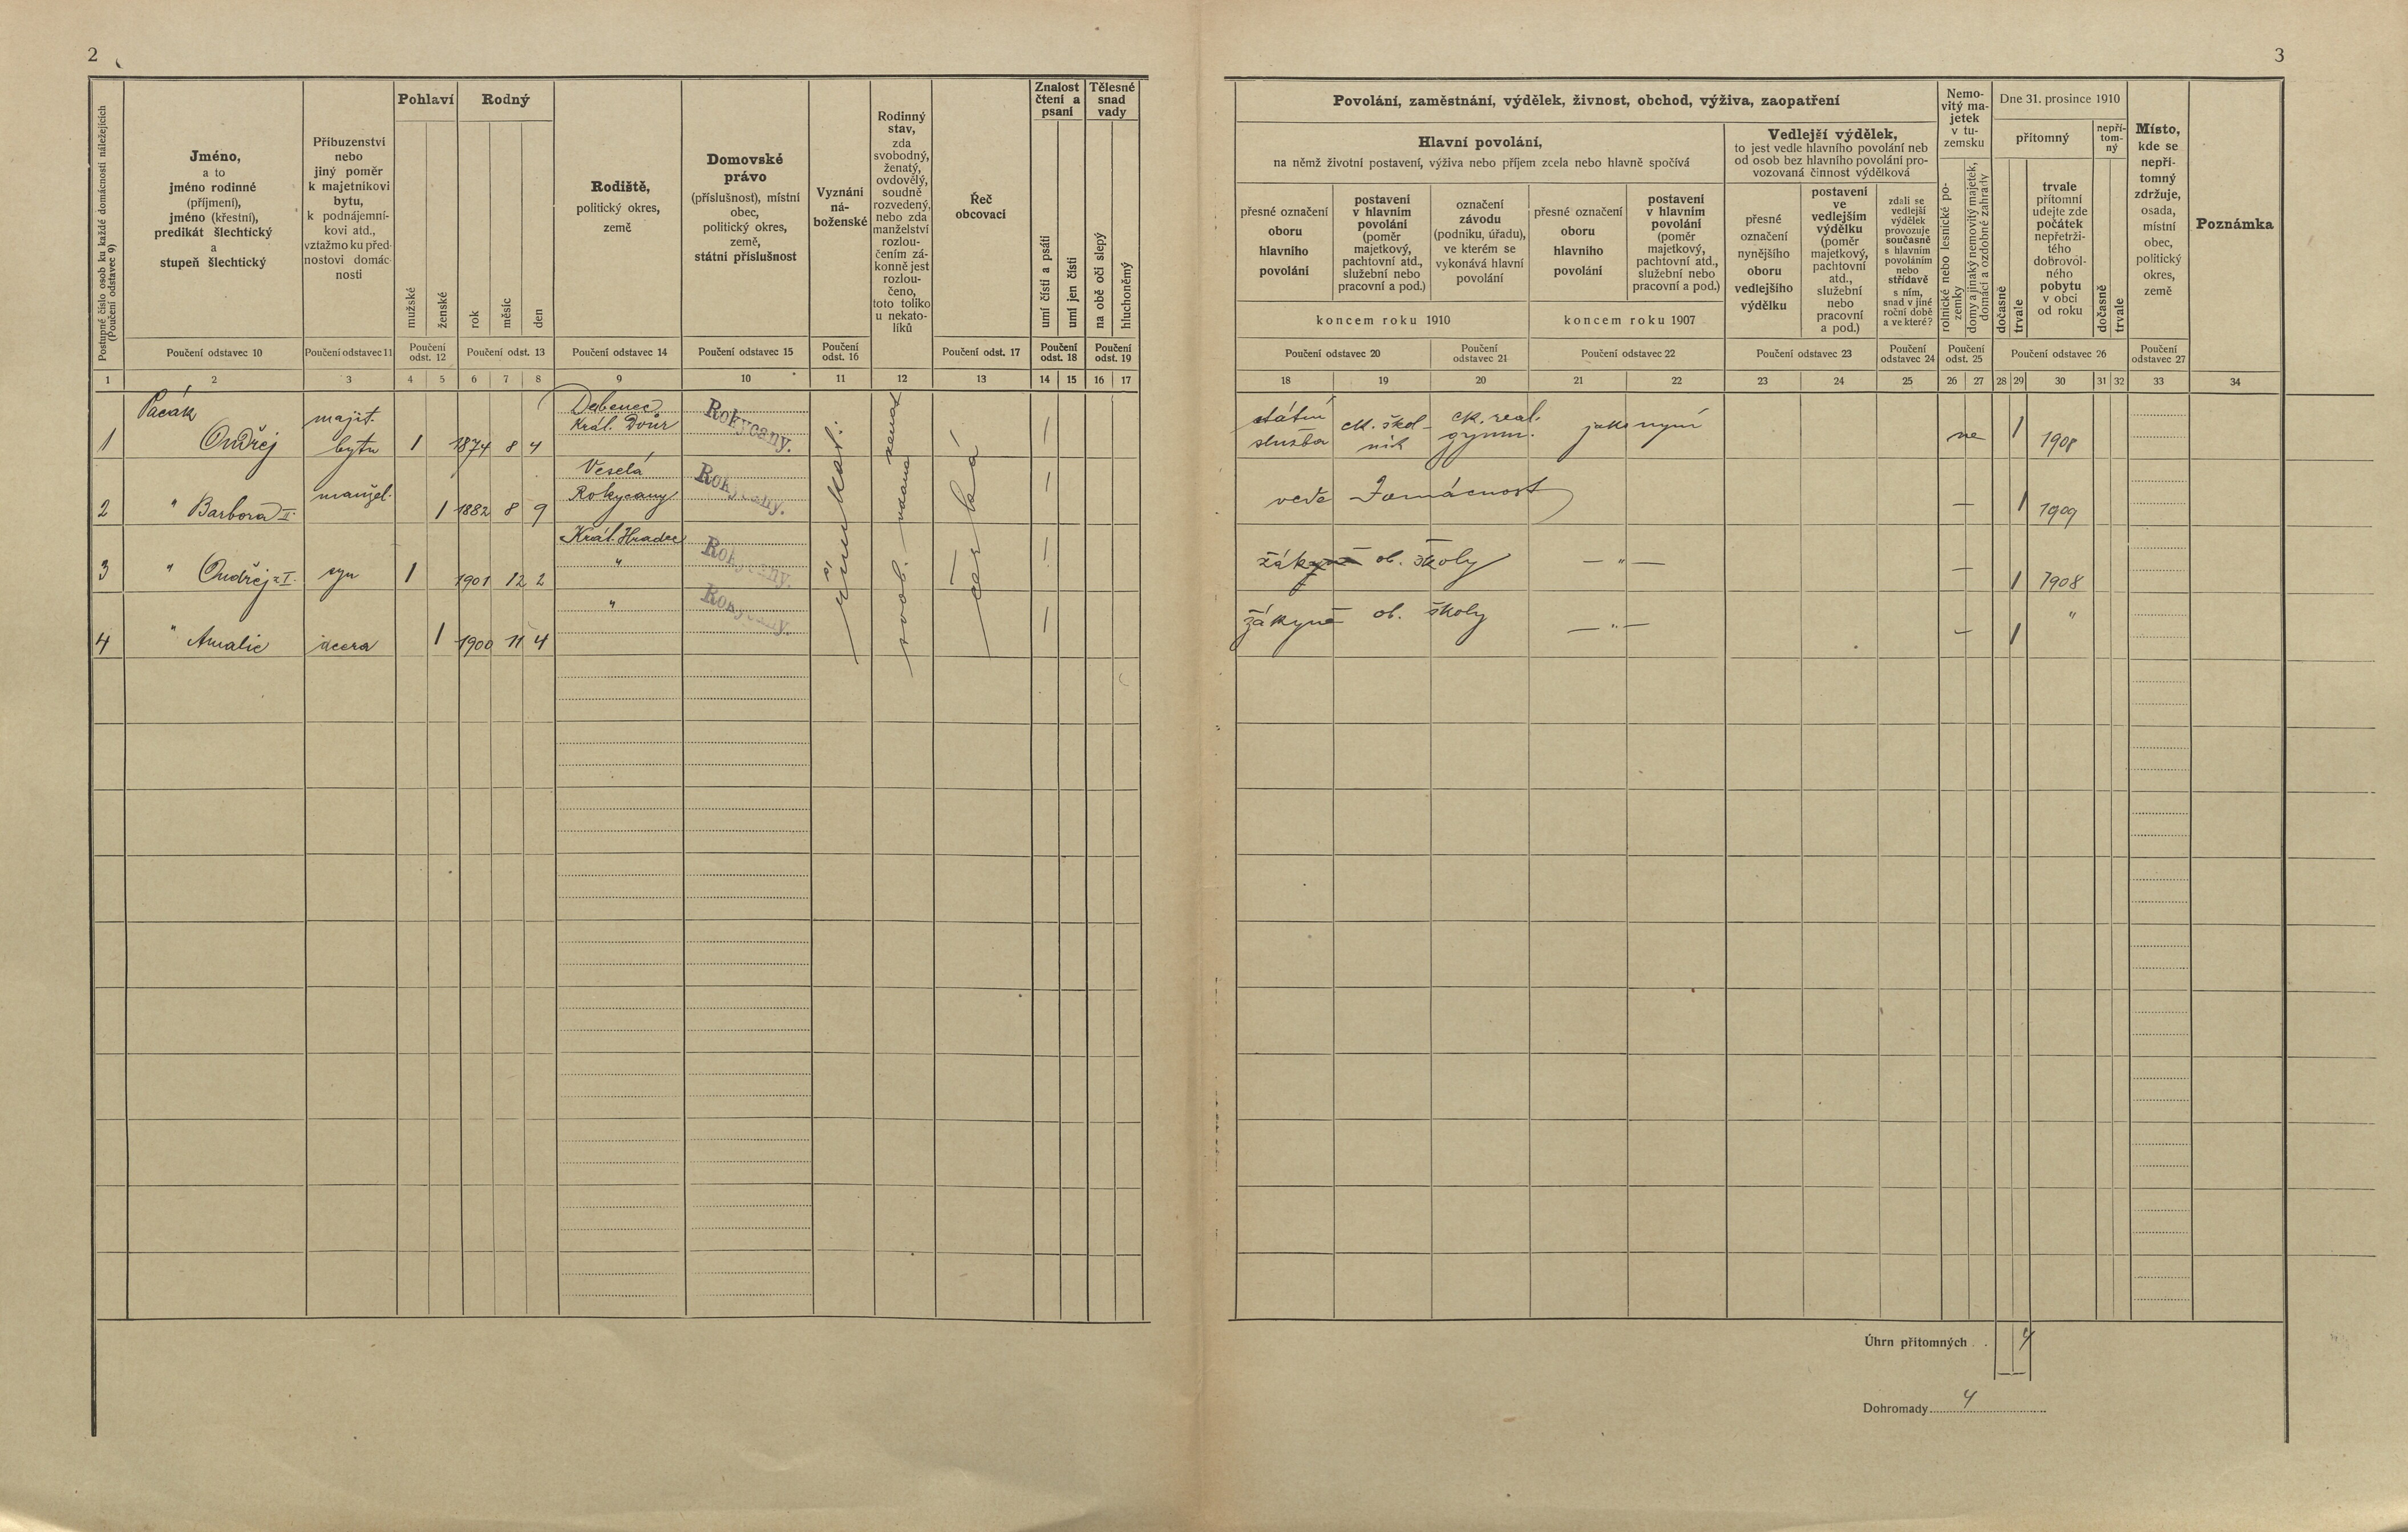 2
3
Postupné číslo osob ku každé domácnosti náležejících
(Poučení odstavec 9)
Jméno,
a to
jméno rodinné
(příjmení),
jméno (křestní),
predikát šlechtický
a
stupeň šlechtický
Příbuzenství
nebo
jiný poměr
k majetníkovi
bytu,
k podnájemní-
kovi atd.,
vztažmo ku před-
nostovi domác-
nosti
Pohlaví
mužské
ženské
Rodný
rok
měsíc
den
Rodiště,
politický okres,
země
Domovské
právo
(příslušnost), místní
obec,
politický okres,
země,
státní příslušnost
Vyznání
ná-
boženské
Rodinný
stav,
zda
svobodný,
ženatý,
ovdovělý,
soudně
rozvedený,
nebo zda
manželství
rozlou-
čením zá-
konně jest
rozlou-
čeno,
toto toliko
u nekato-
líků
Řeč
obcovací
Znalost
čtení a
psaní
umí čísti a psáti
umí jen čísti
Tělesné
snad
vady
na obě oči slepý
hluchoněmý
Poučení odstavec 10
Poučení odstavec 11
Poučení
odst. 12
Poučení odst. 13
Poučení odstavec 14
Poučení odstavec 15
Poučení
odst. 16
Poučení odst. 17
Poučení
odst. 18
Poučení
odst. 19
1 2 3 4 5 6 7 8 9 10 11 12 13 14 15 16 17
Povolání, zaměstnání, výdělek, živnost, obchod, výživa, zaopatření
Hlavní povolání,
na němž životní postavení, výživa nebo příjem zcela nebo hlavně spočívá
přesné označení
oboru
hlavního
povolání
postavení
v hlavním
povolání
(poměr
majetkový,
pachtovní atd.,
služební nebo
pracovní a pod.)
označení
závodu
(podniku, úřadu),
ve kterém se
vykonává hlavní
povolání
koncem roku 1910
přesné označení
oboru
hlavního
povolání
postavení
v hlavním
povolání
(poměr
majetkový,
pachtovní atd.,
služební nebo
pracovní a pod.)
koncem roku 1907
Vedlejší výdělek,
to jest vedle hlavního povolání neb
od osob bez hlavního povolání pro-
vozovaná činnost výdělková
přesné
označení
nynějšího
oboru
vedlejšího
výdělku
postavení
ve
vedlejším
výdělku
(poměr
majetkový,
pachtovní
atd.,
služební
nebo
pracovní
a pod.)
zdali se
vedlejší
výdělek
provozuje
současně
s hlavním
povoláním
nebo
střídavě
s ním,
snad v jiné
roční době
a ve které?
Nemo-
vitý ma-
jetek
v tu-
zemsku
rolnické nebo lesnické po-
zemky
domy a jinaký nemovitý majetek,
domácí a ozdobné zahrady
Dne 31. prosince 1910
přítomný
dočasně
trvale
trvale
přítomní
udejte zde
počátek
nepřetrži-
tého
dobrovol-
ného
pobytu
v obci
od roku
nepří-
tom-
ný
dočasně
trvale
Místo,
kde se
nepří-
tomný
zdržuje,
osada,
místní
obec,
politický
okres,
země
Poznámka
Poučení odstavec 20
Poučení
odstavec 21
Poučení odstavec 22
Poučení odstavec 23
Poučení
odstavec 24
Poučení
odst. 25
Poučení odstavec 26
Poučení
odstavec 27
18 19 20 21 22 23 24 25 26 27 28 29 30 31 32 33 34
Pacák
1 Ondřej
majit.
bytu
1 1874 8 4
Debenec
Král. Dvůr
Rokycany.
římskokat.
svob. — vdaná ženat
česká
1
státní
služba
ck. škol-
ník
ck. real.
gymn.
jak nyní
ne 1 1908
2 " Barbora II.
manžel.
1 1882 8 9
Veselá
Rokycany
Rokycany.
1
vede domácnost
— 1 1909
3 " Ondřej I.
syn 1 1901 12 2
Král. Hradec
"
Rokycany.
1
žák ob. školy — " —
— 1 1908
4 " Amalie
dcera 1 1900 11 4
"
Rokycany.
1
žákyně ob. školy — " —
— 1 "
Úhrn přítomných . . 4
Dohromady 4